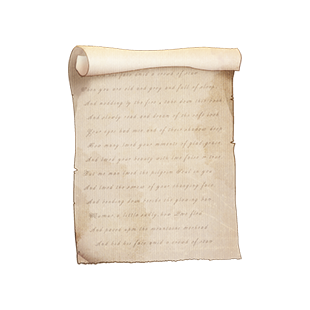 face amid a crowd of stars
When you are old and grey and full of sleep
And nodding by the fire take down this book
And slowly read and dream of the soft look
Your eyes had once and of their shadows deep
How many loved your moments of glad grace
And loved your beauty with love false or true
But one man loved the pilgrim Soul in you
And loved the sorrows of your changing face
And bending down beside the glowing bars
Murmur, a little sadly, how Love fled
And paced upon the mountains overhead
And hid his face amid a crowd of stars